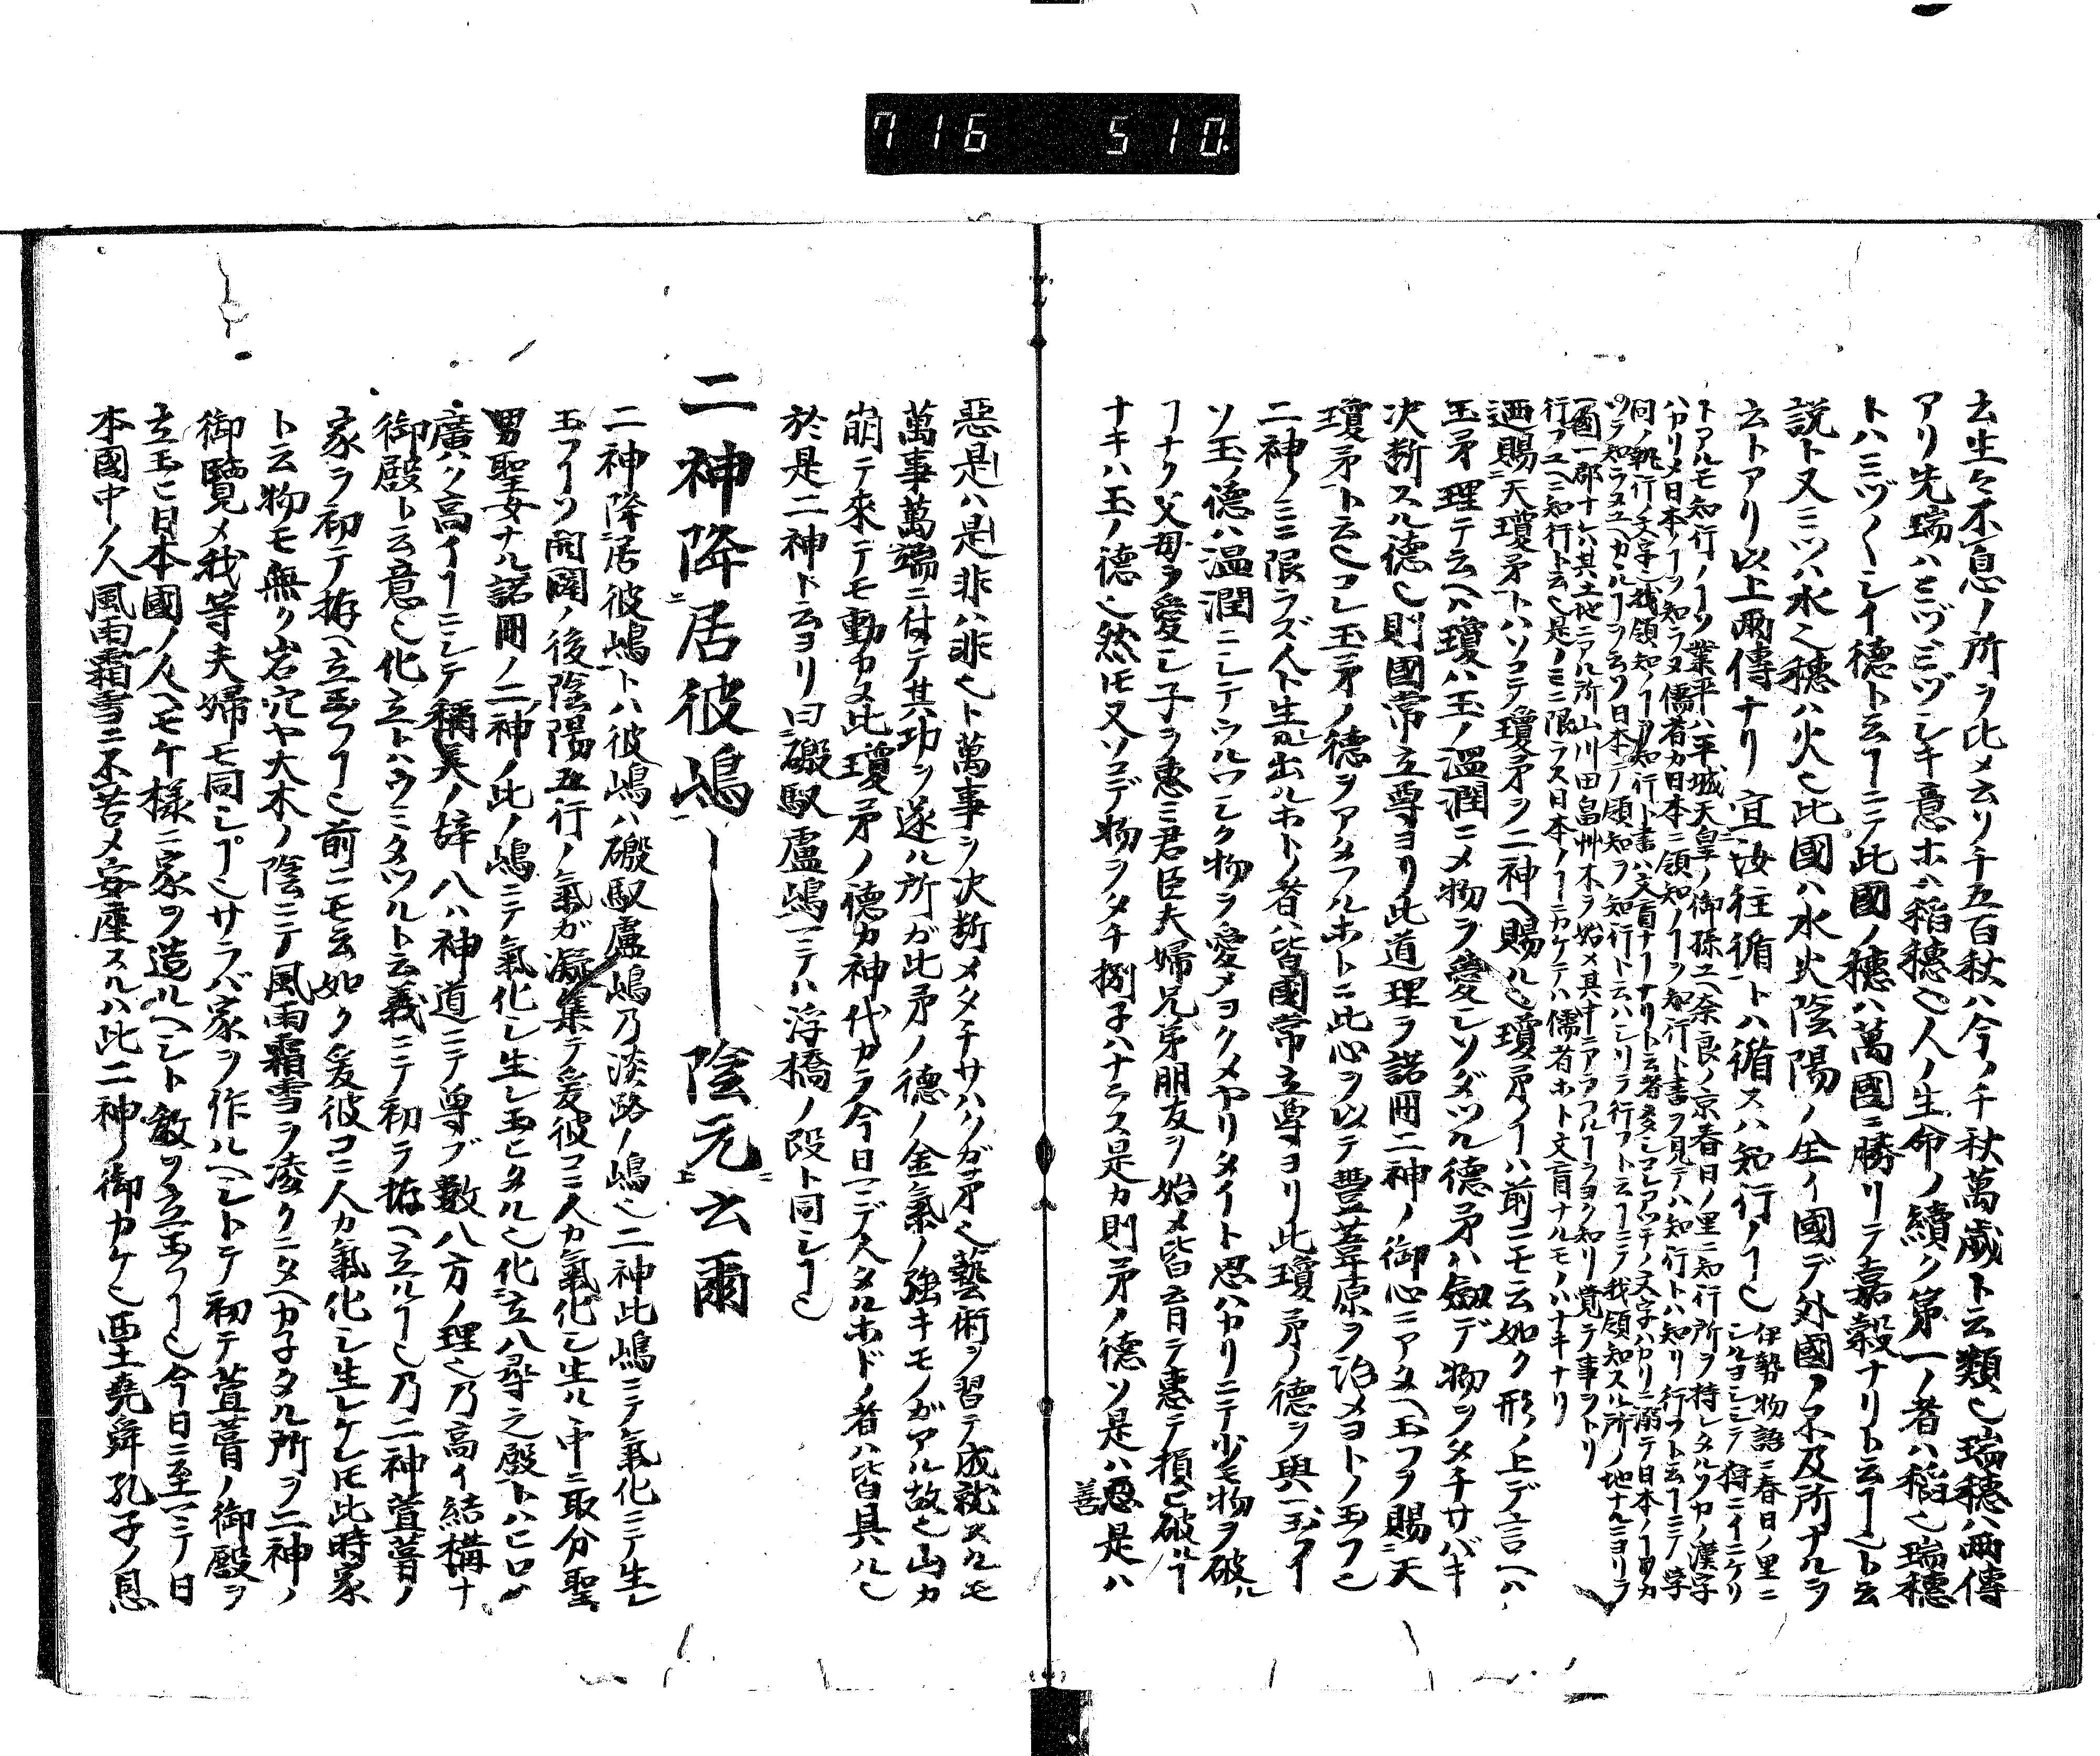 716 510
去生々不息ノ所ヲ此メ云リ千五百秋ハ今ノ千秋萬歳ト云類也瑞穂ハ両傳
アリ先瑞ハミヅミヅシキ意ホハ稲穂也人ノ生命ノ續ク第一ノ者ハ稲也瑞穂
トハミヅ〱シイ徳ト云ヿニテ此國ノ穂ハ萬國ニ勝リテ嘉穀ナリト云ヿ也ト云
説ト又ミツハ水也穂ハ火也此國ハ水火陰陽ノ生イ國デ外國ノ不及所ナルヲ
云トアリ以上兩傳ナリ宜汝往循トハ循スハ知行ノヿ也伊勢物語ニ春日ノ里ニ
シルヨシシテ狩ニイニケリ
トアルモ知行ノヿソ業平ハ平城天皇ノ御孫ユヘ奈良ノ京春日ノ里ニ知行所ヲ持レタルソカノ漢字
ハカリメ日本ノヿヲ知ラヌ儒者カ日本ニ領知ノヿヲ知行ト書ヲ見テハ知行トハ知リ行フト云ヿニテ学
問ノ行ノ文字也我領知ノヿヲ知行ト書ハ文盲ナヿナリト云者多シコレアツチノ文字ハカリニ溺テ日本ノヿヲカ
ツラ知ラヌユヘカルヿヲ云ソ日本デ領知ヲ知行ト云ハシリヲ行フト云ヿニテ我領知スル所ノ地ナルニヨリラ
一國一郡ナレハ其土地ニアル所山川田畠艸木ヲ始メ其中ニアラフルヿヲヨク知リ覚テ事ヲトリ
行フユヘニ知行ト云也是ノミニ限ラス日本ノヿニカケテハ儒者ホト文盲ナルモノハナキナリ
廼賜天瓊矛トハソコテ瓊矛ヲ二神ヘ賜ル也瓊矛ノイハ前ニモ云如ク形ノ上デ言ヘハ
玉矛理テ云ヘハ瓊ハ玉ノ温潤ニメ物ヲ愛シソダツル徳矛ハ劔デ物ヲタチサバキ
決断スル徳也則國常立尊ヨリ此道理ヲ諾冊二神ノ御心ニアタヘ玉フヲ賜天
瓊矛ト云也コレ玉矛ノ徳ヲアタフルホトニ此心ヲ以テ豐葦原ヲ治メヨトノ玉フ也
二神ノミニ限ラズ人ト生レ出ルホトノ者ハ皆國常立尊ヨリ此瓊矛ノ徳ヲ與玉フイ
ソ玉ノ徳ハ温潤ニシテウルワシク物ヲ愛メヨクメヤリタイト思ハカリニテ少モ物ヲ破ル
ヿナク父母ヲ愛シ子ヲ惠ミ君臣夫婦兄弟朋友ヲ始メ皆テ惠テ損ヒ破ルヿ
ナキハ玉ノ徳也然圧又ソコデ物ヲタチ捌子ハナニス是カ則矛ノ徳ソ是ハ惡是ハ
善
惡是ハ是非ハ非也ト萬事ヲ決断メタチサハクガ矛也藝術ヲ習テ成就スルモ
萬事萬端ニ付テ其功ヲ遂ル所ガ此矛ノ徳ノ金氣ノ強キモノガアル故也山カ
崩テ來テモ動カヌ此瓊矛ノ徳カ神代カラ今日マデ人タルホドノ者ハ皆具ル也
於是二神ト云ヨリ曰磤馭盧嶋マテハ浮橋ノ段ト同シヿ也
二神降居彼嶋――陰元云爾
二神降居彼嶋トハ彼嶋ハ磤馭盧嶋乃淡路ノ嶋也二神此嶋ニテ氣化ニテ生レ
玉フイソ開闢ノ後陰陽五行ノ氣ガ凝集テ爰彼コニ人カ氣化シ生ル中ニ取分聖
男聖女ナル諾冊ノ二神ノ此ノ嶋ニテ氣化シ生レ玉ヒタル也化立八尋之殿トハヒロク
廣ハク高イヿニシテ稱美ノ辞八ハ神道ニテ尊ブ數八方ノ理也乃高イ結構ナ
御殿ト云意也化立トハウミタツルト云義ニテ初ラ拵ヘ立ルヿ也乃二神葺萱ノ
家ヲ初テ拵ヘ立玉フヿ也前ニモ云如ク爰彼コニ人カ氣化シ生レケレ圧此時家
ト云物モ無ク岩穴ヤ大木ノ陰ニテ風雨霜雪ヲ凌クニタヘカ子タル所ヲ二神ノ
御覽メ我等夫婦モ同シヿ也サラバ家ヲ作ルヘシトテ初テ葺萱ノ御殿ヲ
立玉ヒ日本國ノ人ヘモケ樣ニ家ヲ造ルヘシト敎ヲ立玉フヿ也今日ニ至マテ日
本國中ノ人風雨霜雪ニ不苦メ安座スルハ此二神ノ御カケ也西土堯舜孔子ノ恩